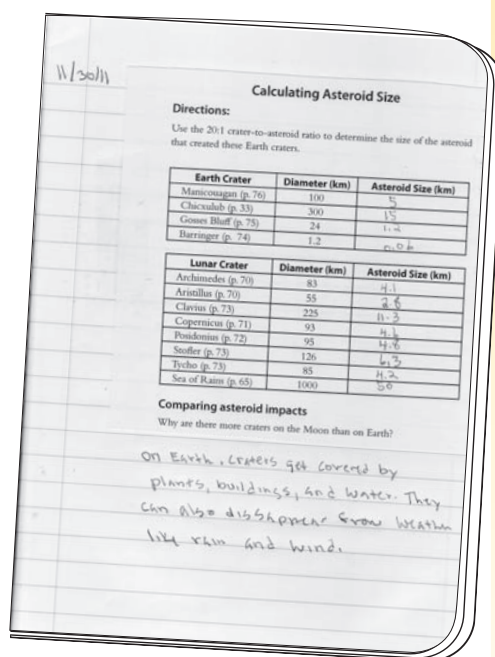 11/30/11
Calculating Asteroid Size
Directions:
Use the 20:1 crater-to-asteroid ratio to determine the size of the asteroid
that created these Earth craters.
Earth Crater Diameter (km) Asteroid Size (km)
Manicouagan (p. 76) 100 5
Chicxulub (p. 33) 300 15
Gosses Bluff (p. 75) 24 1.2
Barringer (p. 74) 1.2 0.06
Lunar Crater Diameter (km) Asteroid Size (km)
Archimedes (p. 70) 83 4.1
Aristillus (p. 70) 55 2.8
Clavius (p. 73) 225 11.3
Copernicus (p. 71) 93 4.6
Posidonius (p. 72) 95 4.8
Stofler (p. 73) 126 6.3
Tycho (p. 73) 85 4.2
Sea of Rains (p. 65) 1000 50
Comparing asteroid impacts
Why are there more craters on the Moon than on Earth?
On Earth, craters get covered by
plants, buildings, and water. They
can also from weather
like rain and wind.